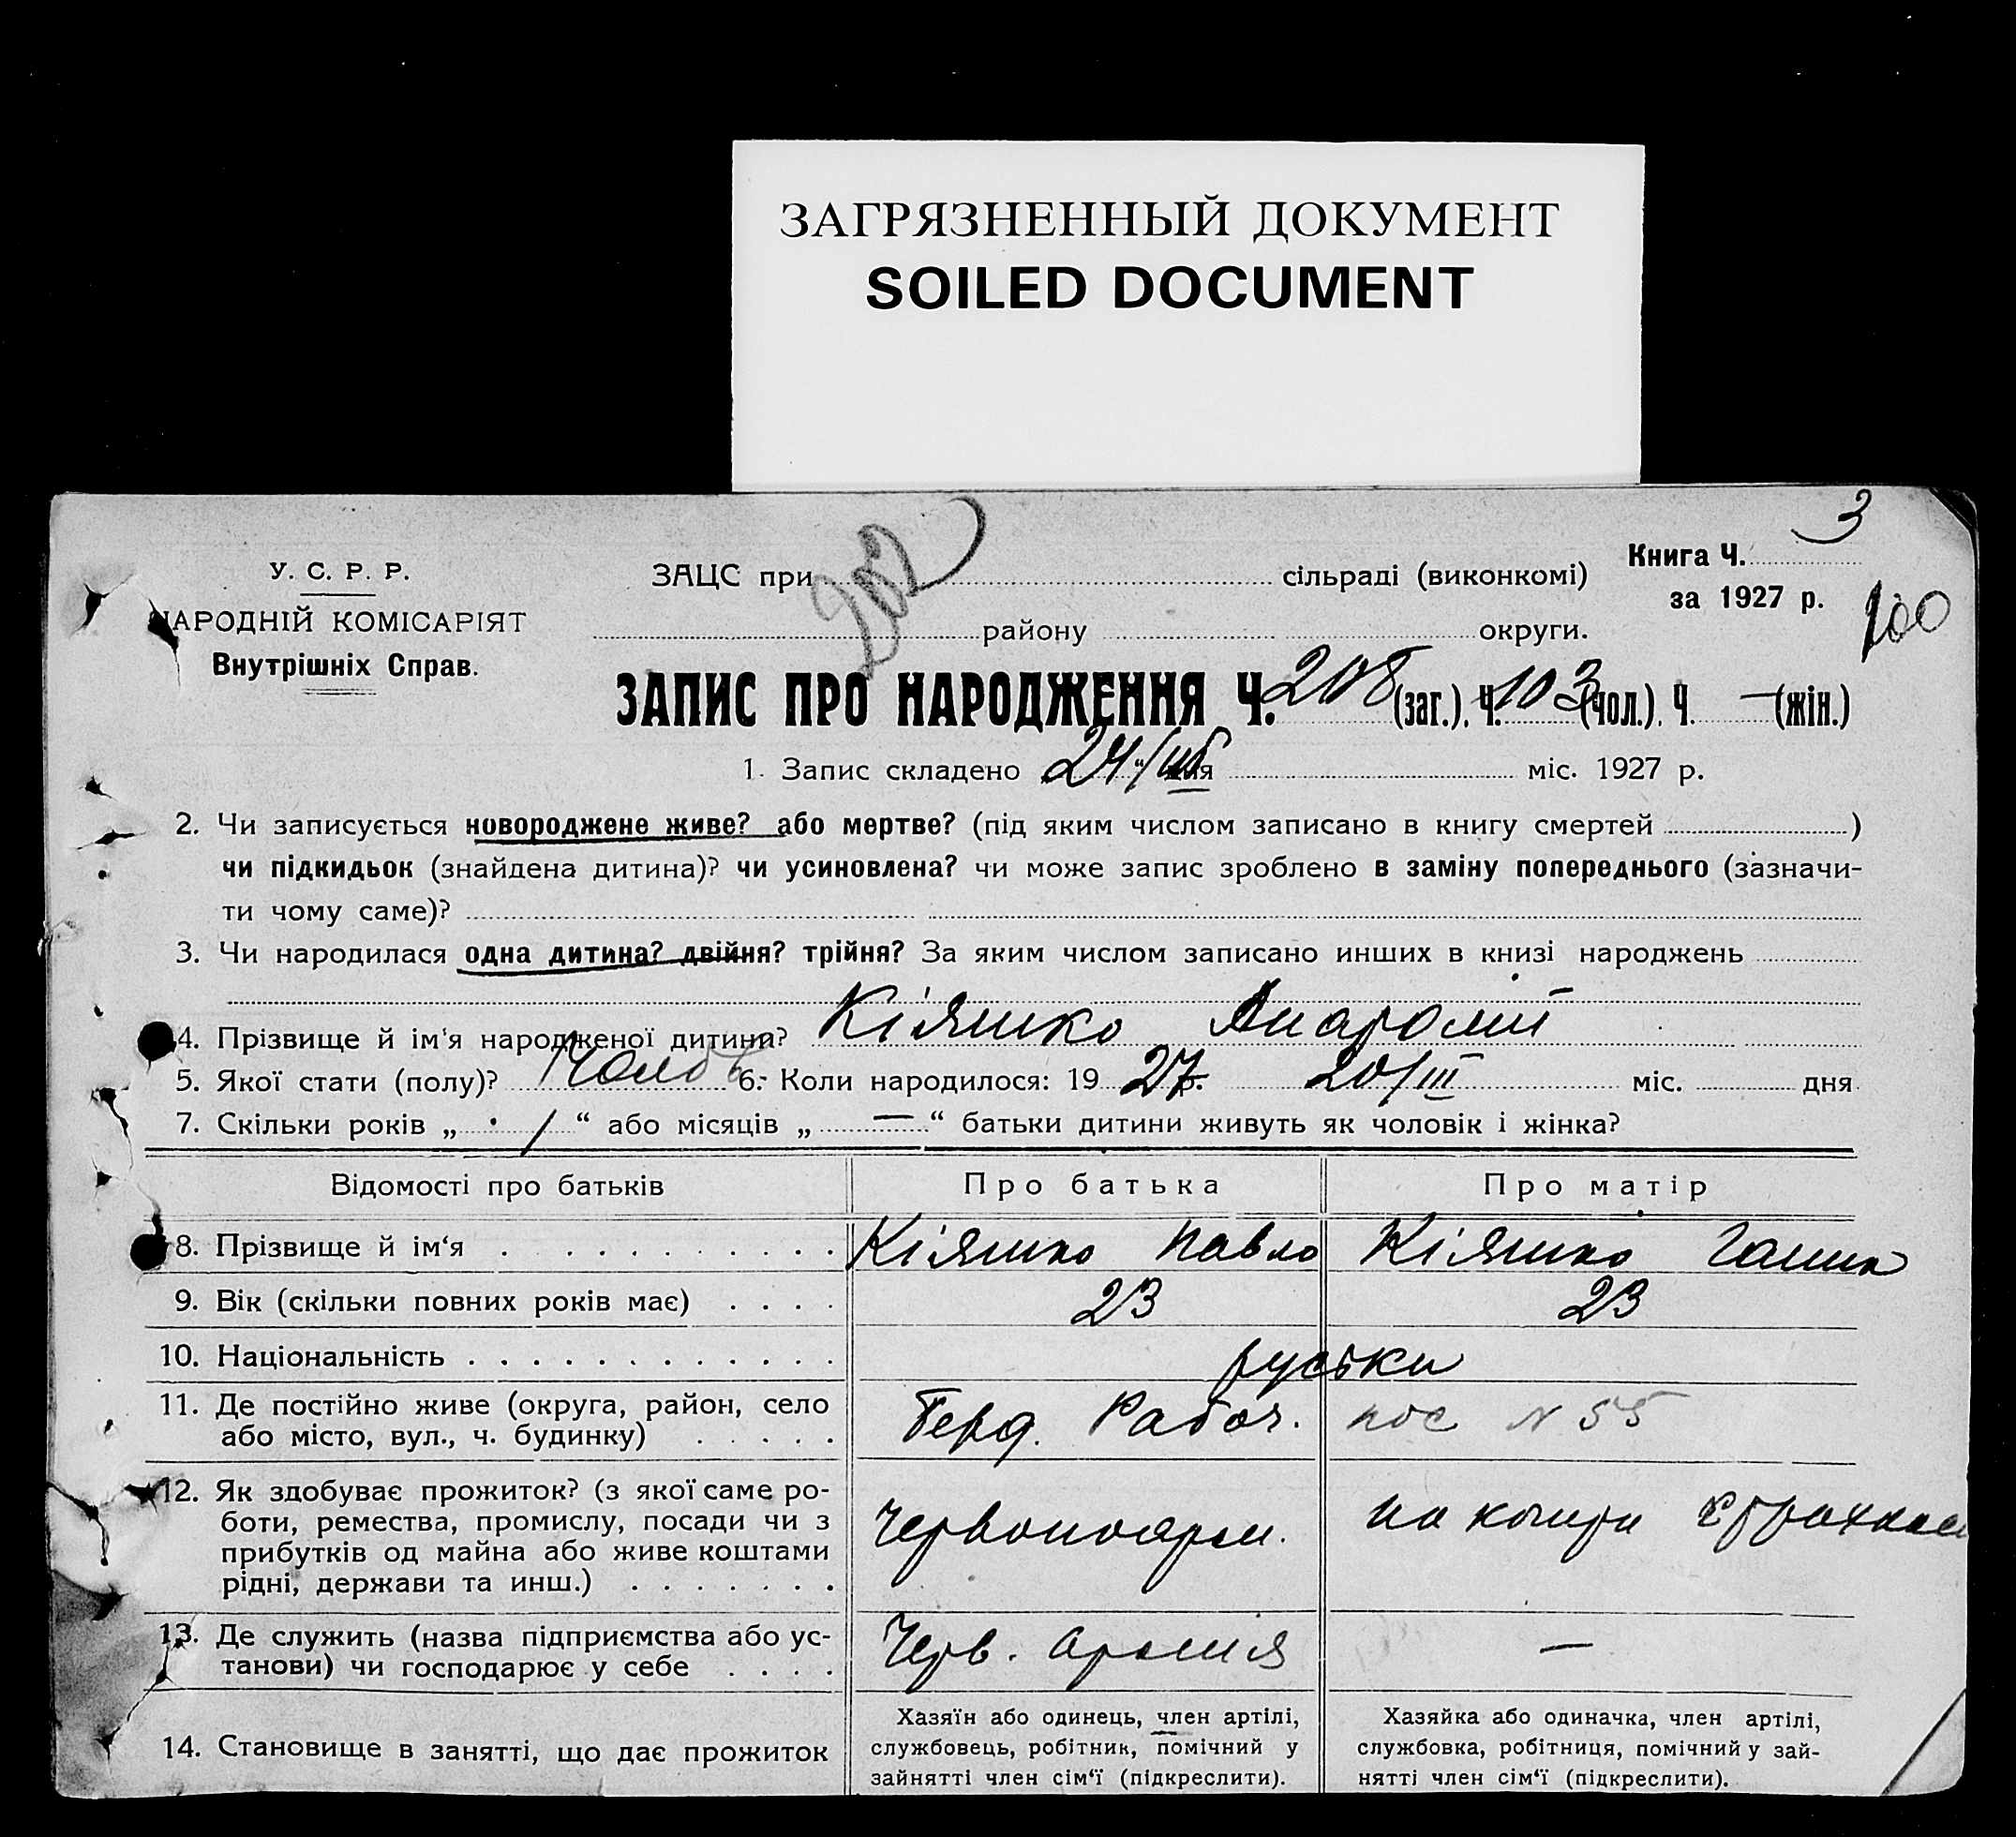 ЗАГРЯЗНЕННЫЙ ДОКУМЕНТ
SOILED DOCUMENT
3
У. С. Р. Р.
НАРОДНІЙ КОМІСАРІЯТ
Внутрішніх Справ.
202
ЗАЦС при сільраді (виконкомі)
району округи.
Книга Ч.
за 1927 р.
100
ЗАПИС ПРО НАРОДЖЕННЯ Ч. 208 (заг.), Ч. 103 (чол.), Ч. — (жін.)
1. Запис складено 24/III дня міс. 1927 р.
2. Чи записується новороджене живе? або мертве? (під яким числом записано в книгу смертей )
чи підкидьок (знайдена дитина)? чи усиновлена? чи може запис зроблено в заміну попереднього (зазначи-
ти чому саме)?
3. Чи народилася одна дитина? двійня? трійня? За яким числом записано инших в книзі народжень
4. Прізвище й ім'я народженої дитини? Кіяшко
5. Якої стати (полу)? Чолов 6. Коли народилося: 19 27 р. 20/III міс. дня
7. Скільки років „ 1 “ або місяців „ — “ батьки дитини живуть як чоловік і жінка?
Відомості про батьків Про батька Про матір
8. Прізвище й ім‘я Кіяшко Павло Кіяшко Ганна
9. Вік (скільки повних років має) 23 23
10. Національність руськи
11. Де постійно живе (округа, район, село
або місто, вул., ч. будинку) Берд. Рабоч. пос N 55
12. Як здобуває прожиток? (з якої саме ро-
боти, ремества, промислу, посади чи з
прибутків од майна або живе коштами
рідні, держави та инш.)
Червоноарм.
на кошти
13. Де служить (назва підприємства або ус-
танови) чи господарює у себе
Черв. армия —
14. Становище в занятті, що дає прожиток
Хазяїн або одинець, член артілі,
службовець, робітник, помічний у
зайнятті член сім‘ї (підкреслити).
Хазяйка або одиначка, член артілі,
службовка, робітниця, помічний у зай-
нятті член сім‘ї (підкреслити).